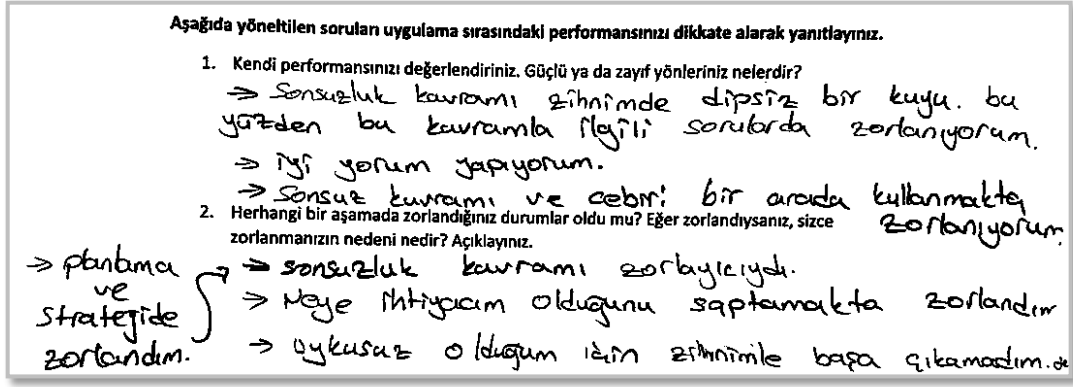 Aşağıda yöneltilen soruları uygulama sırasındaki performansınızı dikkate alarak yanıtlayınız.
1. Kendi performansınızı değerlendiriniz. Güçlü ya da zayıf yönleriniz nelerdir?
→ Sonsuzluk kavramı zihnimde dipsiz bir kuyu. bu
yüzden bu kavramla ilgili sorularda zorlanıyorum.
→ iyi yorum yapıyorum.
→ Sonsuz kavramı ve cebiri bir arada kullanmakta
zorlanıyorum.
2. Herhangi bir aşamada zorlandığınız durumlar oldu mu? Eğer zorlandıysanız, sizce
zorlanmanızın nedeni nedir? Açıklayınız.
→ planlama
ve
stratejide
zorlandım.
→ sonsuzluk kavramı zorlayıcıydı.
→ Neye ihtiyacım olduğunu saptamakta zorlandım
→ uykusuz olduğum için zihnimle başa çıkamadım.